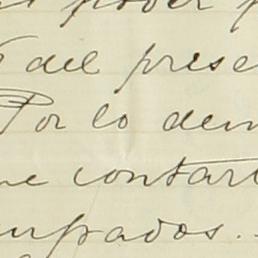 poder
del prese
Por lo dem
contar
upados.